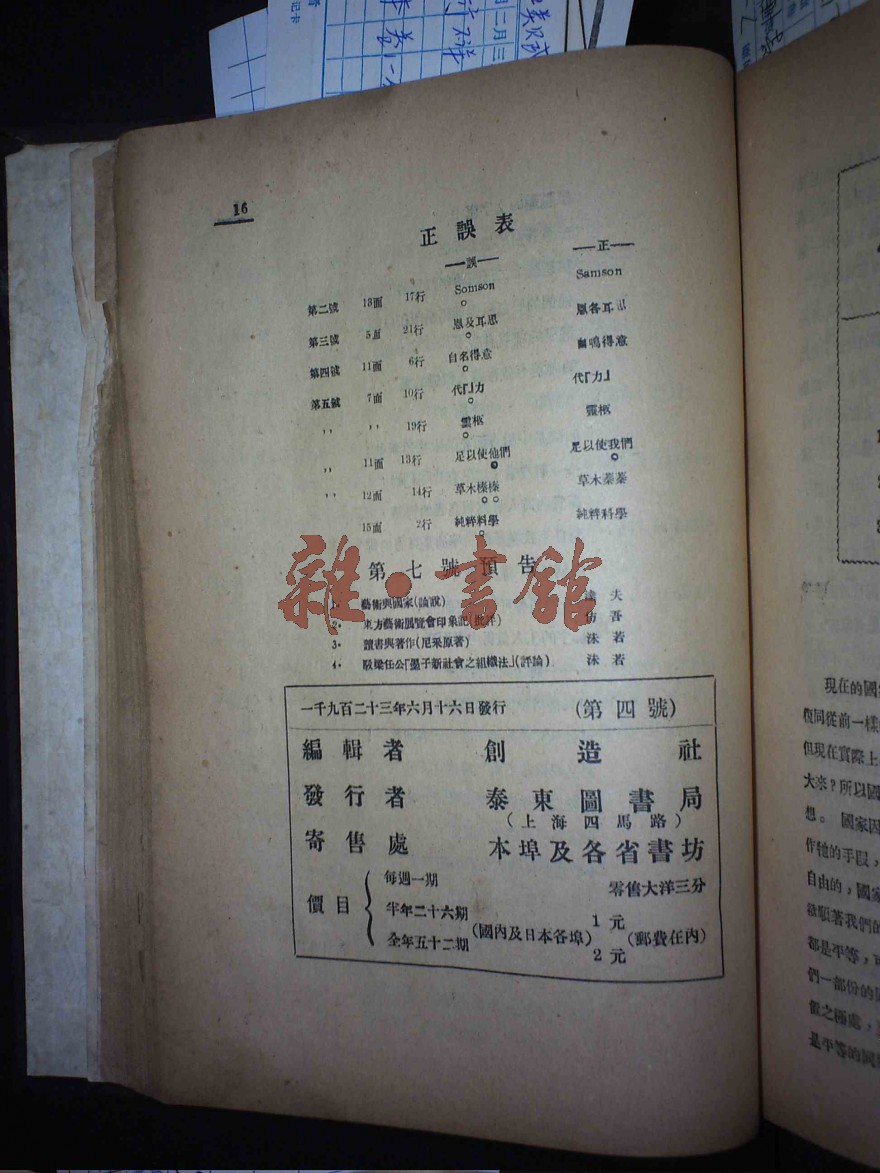 16
正誤表
—誤— —正—
第二號 13面 17行 Somson Samson
第三號 5面 21行 恩及耳思 恩各耳思
第四號 11面 6行 自名得意 自鳴得意
第五號 7面 10行 代『』力 代『力』
,, ,, 19行 靈柩 靈柩
,, 11面 13行 足以使他們 足以使我們
,, 12面 14行 草木榛榛 草木蓁蓁
15面 2行 純粹科學 純粹科學
第七號預告
雜·書館
1· 藝術與國家(論說) 達夫
2· 東方藝術展覽會印象記(批評) 仿吾
3· 讀書與著作(尼采原著) 沫若
4· 駁梁任公『墨子新社會之組織法』(評論) 沫若
一千九百二十三年六月十六日發行 (第四號)
編輯者 創造社
發行者 泰東圖書局
(上海四馬路)
寄售處 本埠及各省書坊
價目
每週一期 零售大洋三分
半年二十六期 1元
(國內及日本各埠) (郵費在內)
全年五十二期 2元
現在的國
復同從前一樣
但現在實際上
大來?所以國
想。 國家因
作牠的手段,
自由的,國家
欲順著我們的
都是平等,
們一部份的
僿之極處,
是平等的國